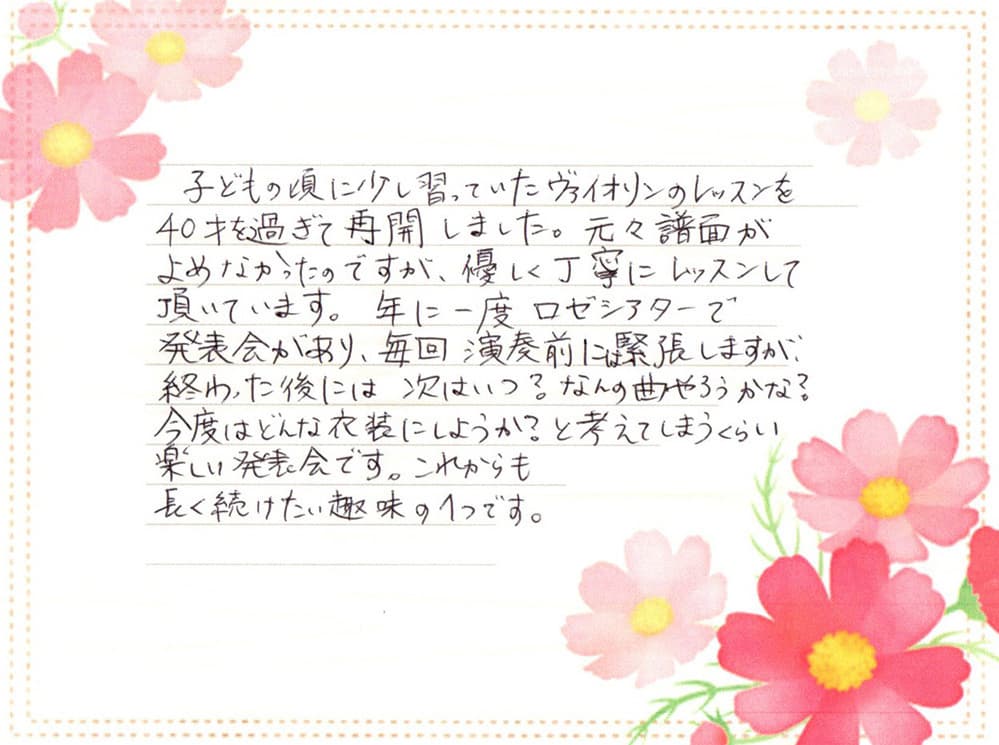 子どもの頃に少し習っていたヴァイオリンのレッスンを
40才を過ぎて再開しました。元々譜面が
よめなかったのですが、優しく丁寧にレッスンして
頂いています。年に一度ロゼシアターで
発表会があり、毎回演奏前には緊張しますが、
終わった後には次はいつ?なんの曲やろうかな?
今度はどんな衣装にしようか?と考えてしまうくらい
楽しい発表会です。これからも
長く続けたい趣味の1つです。